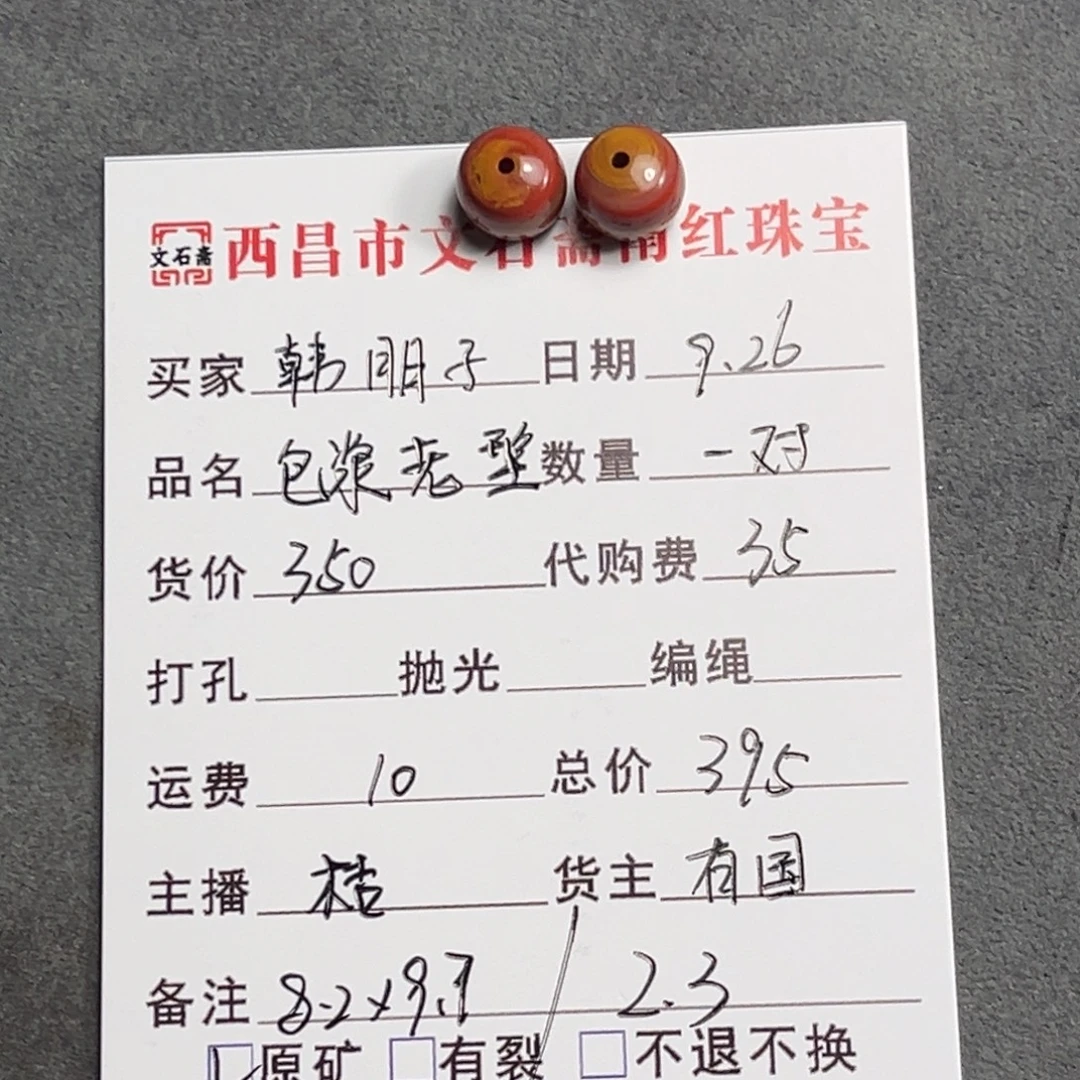 文石斋 西昌市文石斋南红珠宝
买家 韩朋子 日期 9.26
品名 包浆老型 数量 一对
货价 350 代购费 35
打孔 抛光 编绳
运费 10 总价 395
主播 桔 货主 有国
备注 8.2x9.7 / 2.3
原矿 有裂 不退不换